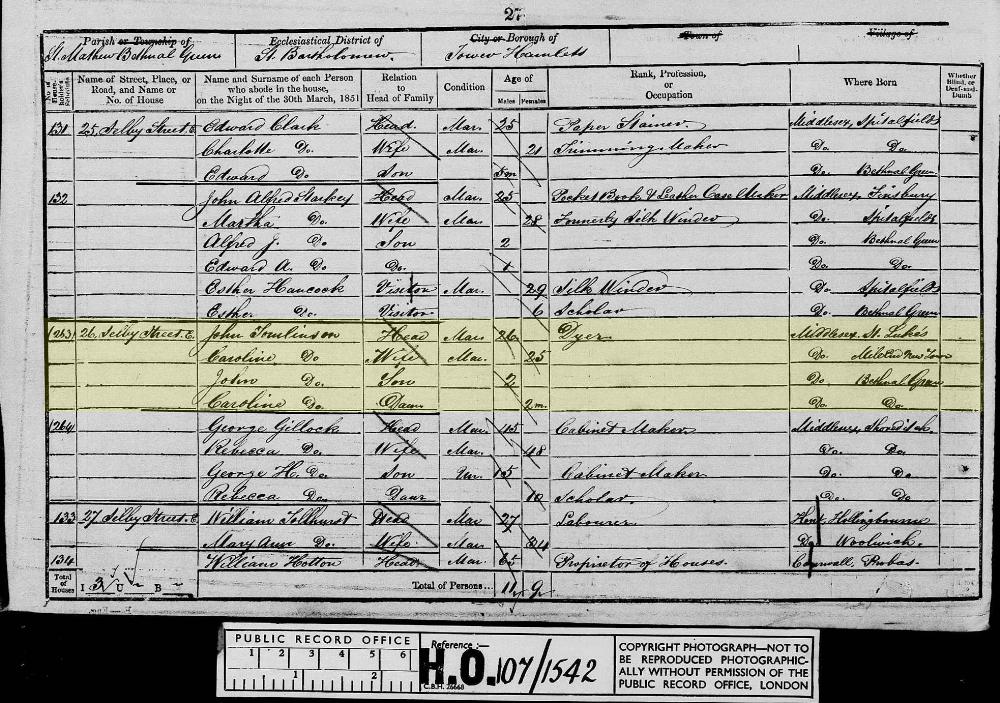 27
Parish or Township of
St. Mathew Bethnal Green
Ecclesiastical District of
St. Bartholomew.
City or Borough of
Tower Hamlets
Town of
Village of
No. of House-holder's Schedule
Name of Street, Place, or Road, and Name or No. of House
Name and Surname of each Person who abode in the house, on the Night of the 30th March, 1851
Relation to Head of Family
Condition
Age of
Males Females
Rank, Profession, or Occupation
Where Born
Whether Blind, or Deaf-and-Dumb
131 25 Selby Street E. Edward Clark Head. Mar. 25 Paper Stainer. Middlesex, Spitalfields
Charlotte Do. Wife Mar. 21 Trimming Maker Do. Do.
Edward Do. Son 5m Do. Bethnal Green
132 John Alfred Starkey Head Mar. 25 Pocket Book & Leather Case Maker Middlesex, Finsbury
Martha Do. Wife Mar. 28 Formerly Silk Winder Do. Spitalfields
Alfred J. Do Son 2 Do. Bethnal Green
Edward A. Do Do. 1 Do. Do.
Esther Hancock Visitor Mar. 29 Silk Winder Do. Spitalfields
Esther Do. Visitor 6 Scholar Do. Bethnal Green
26 Selby Street. E. John Tomlinson Head Mar. 26 Dyer Middlesex, St. Luke's
Caroline Do Wife Mar. 25 Do. Mile End New Town
John Do. Son 2 Do. Bethnal Green
Caroline Do. Daur 2m. Do. Do.
George Gillock Head Mar. 45 Cabinet Maker Middlesex, Shoreditch.
Rebecca Do. Wife Mar. 48 Do. Do.
George H. Do. Son Un. 15 Cabinet Maker Do. Do.
Rebecca Do. Daur 10 Scholar Do. Do
133 27 Selby Street. E. William Tollhurst Head Mar 27 Labourer Kent, Hollingbourne
Mary Ann Do. Wife Mar. 34 Do Woolwich.
134 William Hotton Head Mar. 65 Proprietor of Houses. Cornwall, Probus.
Total of Houses I 3 U B Total of Persons... 11 9
PUBLIC RECORD OFFICE
1 2 3 4 5 6
1 2
Reference :—
H.O. 107/1542
C.B.H. 26668
COPYRIGHT PHOTOGRAPH—NOT TO
BE REPRODUCED PHOTOGRAPHIC-
ALLY WITHOUT PERMISSION OF THE
PUBLIC RECORD OFFICE, LONDON